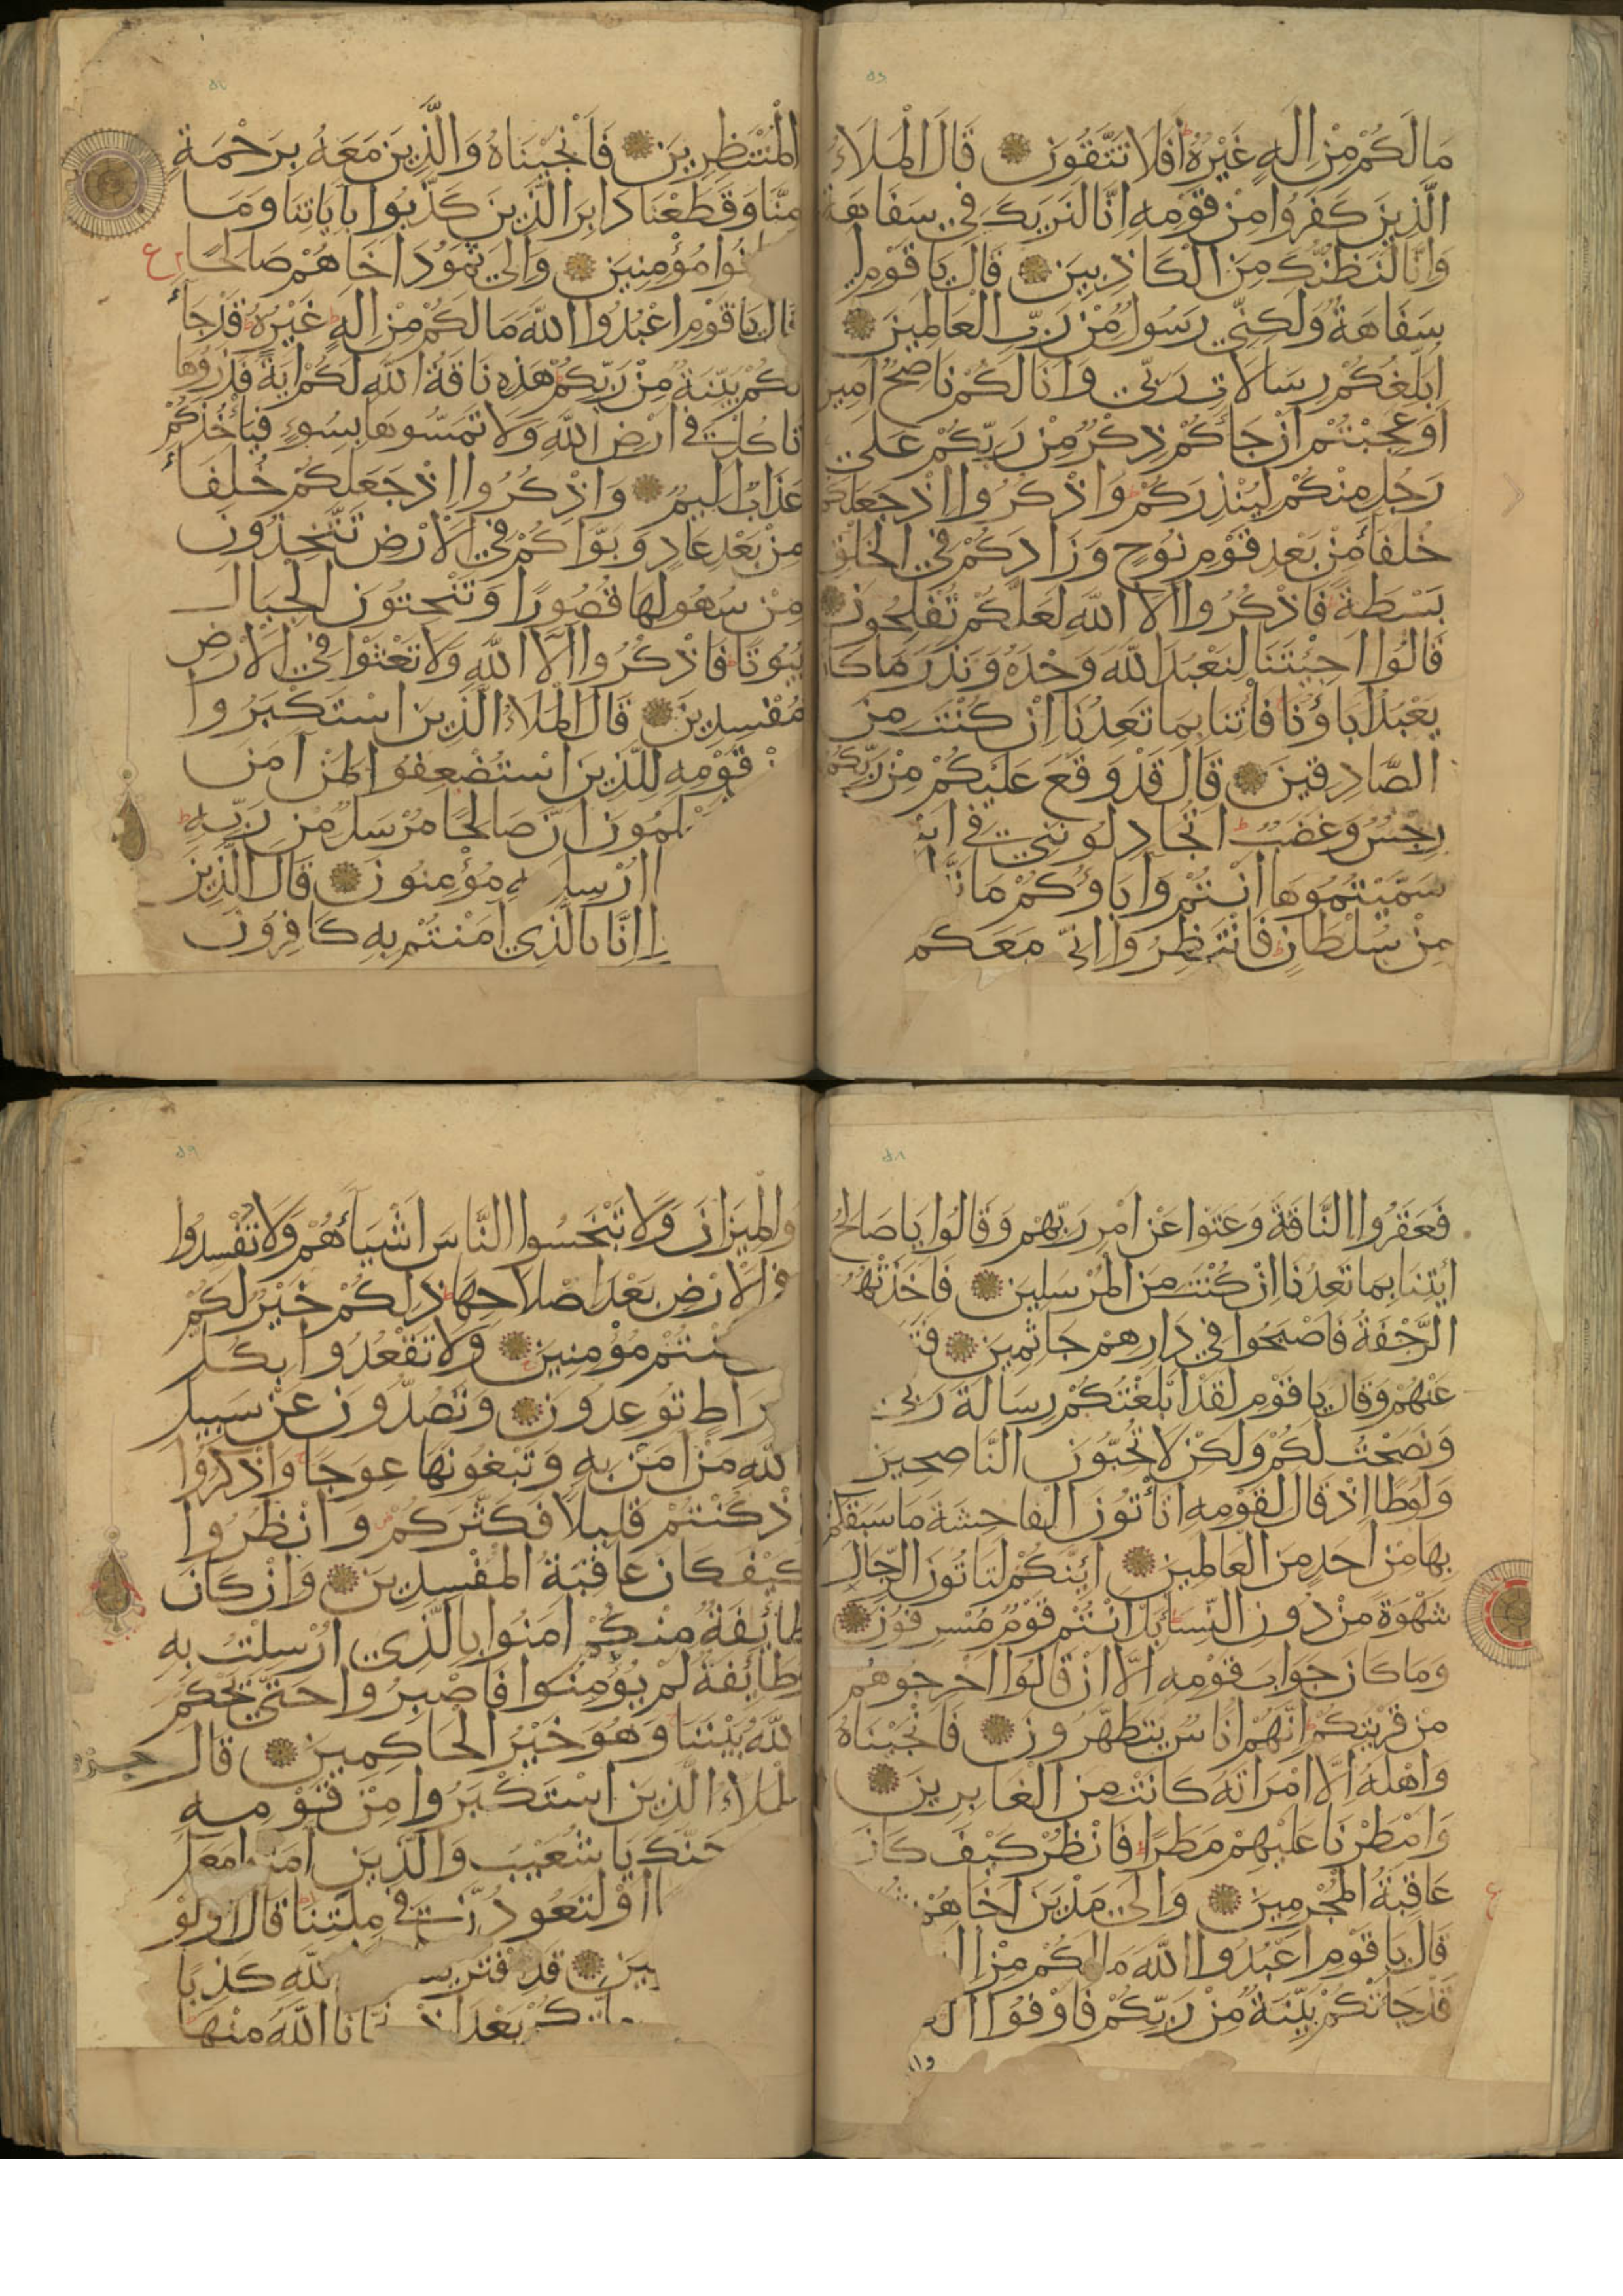 مَا لَكُمْ مِنْ اِلَهٍ غَيْرُهُ اَفَلَا تَتَّقُونَ قَالَ الْمَلَاءُ
الَّذِينَ كَفَرُوا مِنْ قَوْمِهِ اِنَّا لَنَرَيكَ فِي سَفَاهَةٍ
وَاِنَّا لَنَظُنُّكَ مِنَ الْكَاذِبِينَ قَالَ يَا قَوْمِ
سَفَاهَةٌ وَلَكِنِّي رَسُولٌ مِنْ رَبِّ الْعَالَمِينَ
اُبَلِّغُكُمْ رِسَالَاتِ رَبِّي وَاَنَا لَكُمْ نَاصِحٌ اَمِين
اَوَعَجِبْتُمْ اَنْ جَاَءَكُمْ ذِكْرٌ مِنْ رَبِّكُمْ عَلَى
رَجُلٍ مِنْكُمْ لِيُنْذِرَكُمْ وَاذْكُرُوا اِذْ جَعَلَكُمْ
خُلَفَاَءَ مِنْ بَعْدِ قَوْمِ نُوحٍ وَزَادَكُمْ فِي الْخَلْقِ
بَسْطَةً فَاذْكُرُوا اَلَاءَ اللَّهِ لَعَلَّكُمْ تُفْلِحُونَ
قَالُوا اَجِئْتَنَا لِنَعْبُدَ اللَّهَ وَحْدَهُ وَنَذَرَ مَا كَانَ
يَعْبُدُ اَبَاؤُنَا فَأْتِنَا بِمَا تَعِدُنَا اِنْ كُنْتَ مِنَ
الصَّادِقِينَ قَالَ قَدْ وَقَعَ عَلَيْكُمْ مِنْ رَبِّكُمْ
رِجْسٌ وَغَضَبٌ اَتُجَادِلُونَنِي فِي
سَمَّيْتُمُوهَا اَنْتُمْ وَاَبَاؤُكُمْ مَا
مِنْ سُلْطَانٍ فَانْتَظِرُوا اِنِّي مَعَكُم
الْمُنْتَظِرِينَ فَاَنْجَيْنَاهُ وَالَّذِينَ مَعَهُ بِرَحْمَةٍ
مِنَّا وَقَطَعْنَا دَابِرَ الَّذِينَ كَذَّبُوا بِاَيَاتِنَا وَمَا
نُوا مُؤْمِنِينَ وَاِلَى ثَمُودَ اَخَاهُمْ صَالِحًا
قَالَ يَا قَوْمِ اعْبُدُوا اللَّهَ مَا لَكُمْ مِنْ اِلَهٍ غَيْرُهُ قَدْ جَاَ
تكُمْ بَيِّنَةٌ مِنْ رَبِّكُمْ هَذِهِ نَاقَةُ اللَّهِ لَكُمْ اَيَةً فَذَرُوهَا
تَاْكُلْ فِي اَرْضِ اللَّهِ وَلَا تَمَسُّوهَا بِسُوءٍ فَيَأْخُذَكُمْ
عَذَابٌ اَلِيمٌ وَاذْكُرُوا اِذْ جَعَلَكُمْ خُلَفَاَء
مِنْ بَعْدِ عَادٍ وَبَوَّاَكُمْ فِي الْاَرْضِ تَتَّخِذُونَ
مِنْ سُهُولِهَا قُصُورًا وَتَنْحِتُونَ الْجِبَالَ
بُيُوتًا فَاذْكُرُوا اَلَاءَ اللَّهِ وَلَا تَعْثَوْا فِي الْاَرْضِ
مُفْسِدِينَ قَالَ الْمَلَاءُ الَّذِينَ اسْتَكْبَرُوا
قَوْمِهِ لِلَّذِينَ اسْتُضْعِفُوا لِمَنْ اَمَنَ
لَمُونَ اَنَّ صَالِحًا مُرْسَلٌ مِنْ رَبِّهِ
اُرْسِلَ بِهِ مُؤْمِنُونَ قَالَ الَّذِينَ
اِنَّا بِالَّذِي اَمَنْتُمْ بِهِ كَافِرُونَ
فَعَقَرُوا النَّاقَةَ وَعَتَوْا عَنْ اَمْرِ رَبِّهِمْ وَقَالُوا يَا صَالِحُ
ائِتِنَا بِمَا تَعِدُنَا اِنْ كُنْتَ مِنَ الْمُرْسَلِينَ فَاَخَذَتْهُمُ
الرَّجْفَةُ فَاَصْبَحُوا فِي دَارِهِمْ جَاثِمِينَ
عَنْهُمْ وَقَالَ يَا قَوْمِ لَقَدْ اَبْلَغْتُكُمْ رِسَالَةَ رَبِّي
وَنَصَحْتُ لَكُمْ وَلَكِنْ لَا تُحِبُّونَ النَّاصِحِينَ
وَلُوطًا اِذْ قَالَ لِقَوْمِهِ اَتَأْتُونَ الْفَاحِشَةَ مَا سَبَقَكُمْ
بِهَا مِنْ اَحَدٍ مِنَ الْعَالَمِينَ اَئِنَّكُمْ لَتَاْتُونَ الرِّجَالَ
شَهْوَةً مِنْ دُونِ النِّسَاَءِ بَلْ اَنْتُمْ قَوْمٌ مُسْرِفُونَ
وَمَا كَانَ جَوَابَ قَوْمِهِ اِلَّا اَنْ قَالُوا اَخْرِجُوهُمْ
مِنْ قَرْيَتِكُمْ اِنَّهُمْ اُنَاسٌ يَتَطَهَّرُونَ فَاَنْجَيْنَاهُ
وَاَهْلَهُ اِلَّا امْرَاَتَهُ كَانَتْ مِنَ الْغَابِرِينَ
وَاَمْطَرْنَا عَلَيْهِمْ مَطَرًا فَانْظُرْ كَيْفَ كَانَ
عَاقِبَةُ الْمُجْرِمِينَ وَاِلَى مَدْيَنَ اَخَاهُمْ
قَالَ يَا قَوْمِ اعْبُدُوا اللَّهَ مَا لَكُمْ مِنْ
قَدْ جَاَءَتْكُمْ بَيِّنَةٌ مِنْ رَبِّكُمْ فَاَوْفُوا
وَالْمِيزَانَ وَلَا تَبْخَسُوا النَّاسَ اَشْيَاَءَهُمْ وَلَا تُفْسِدُوا
فِي الْاَرْضِ بَعْدَ اِصْلَاحِهَا ذَلِكُمْ خَيْرٌ لَكُمْ
كُنْتُمْ مُؤْمِنِينَ وَلَا تَقْعُدُوا بِكُلِّ
رَاطٍ تُوعِدُونَ وَتَصُدُّونَ عَنْ سَبِيلِ
اللَّهِ مَنْ اَمَنَ بِهِ وَتَبْغُونَهَا عِوَجًا وَاذْكُرُوا
اِذْ كُنْتُمْ قَلِيلًا فَكَثَّرَكُمْ وَانْظُرُوا
كَيْفَ كَانَ عَاقِبَةُ الْمُفْسِدِينَ وَاِنْ كَانَ
طَائِفَةٌ مِنْكُمْ اَمَنُوا بِالَّذِي اُرْسِلْتُ بِهِ
وَطَائِفَةٌ لَمْ يُؤْمِنُوا فَاصْبِرُوا حَتَّى يَحْكُمَ
اللَّهُ بَيْنَنَا وَهُوَ خَيْرُ الْحَاكِمِينَ قَالَ
الْمَلَاءُ الَّذِينَ اسْتَكْبَرُوا مِنْ قَوْمِهِ
جَنَّكَ يَا شُعَيْبُ وَالَّذِينَ اَمَنُوا مَعَكَ
اَوْ لَتَعُودُنَّ فِي مِلَّتِنَا قَالَ اَوَلَوْ
هِينَ قَدِ افْتَرَيْنَا اللَّهِ كَذِبًا
كُمْ بَعْدَ اِذْ نَجَّانَا اللَّهُ مِنْهَا